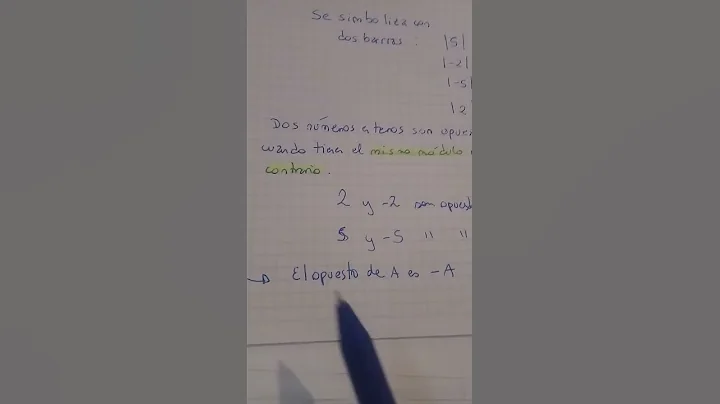 Se simboliza con
dos barras : |5|
|-2|
|-5|
|2
Dos números enteros son opue
cuando tienen el mismo módulo
contrario.
2 y -2 son opuest
5 y -5 " "
→ El opuesto de A es -A